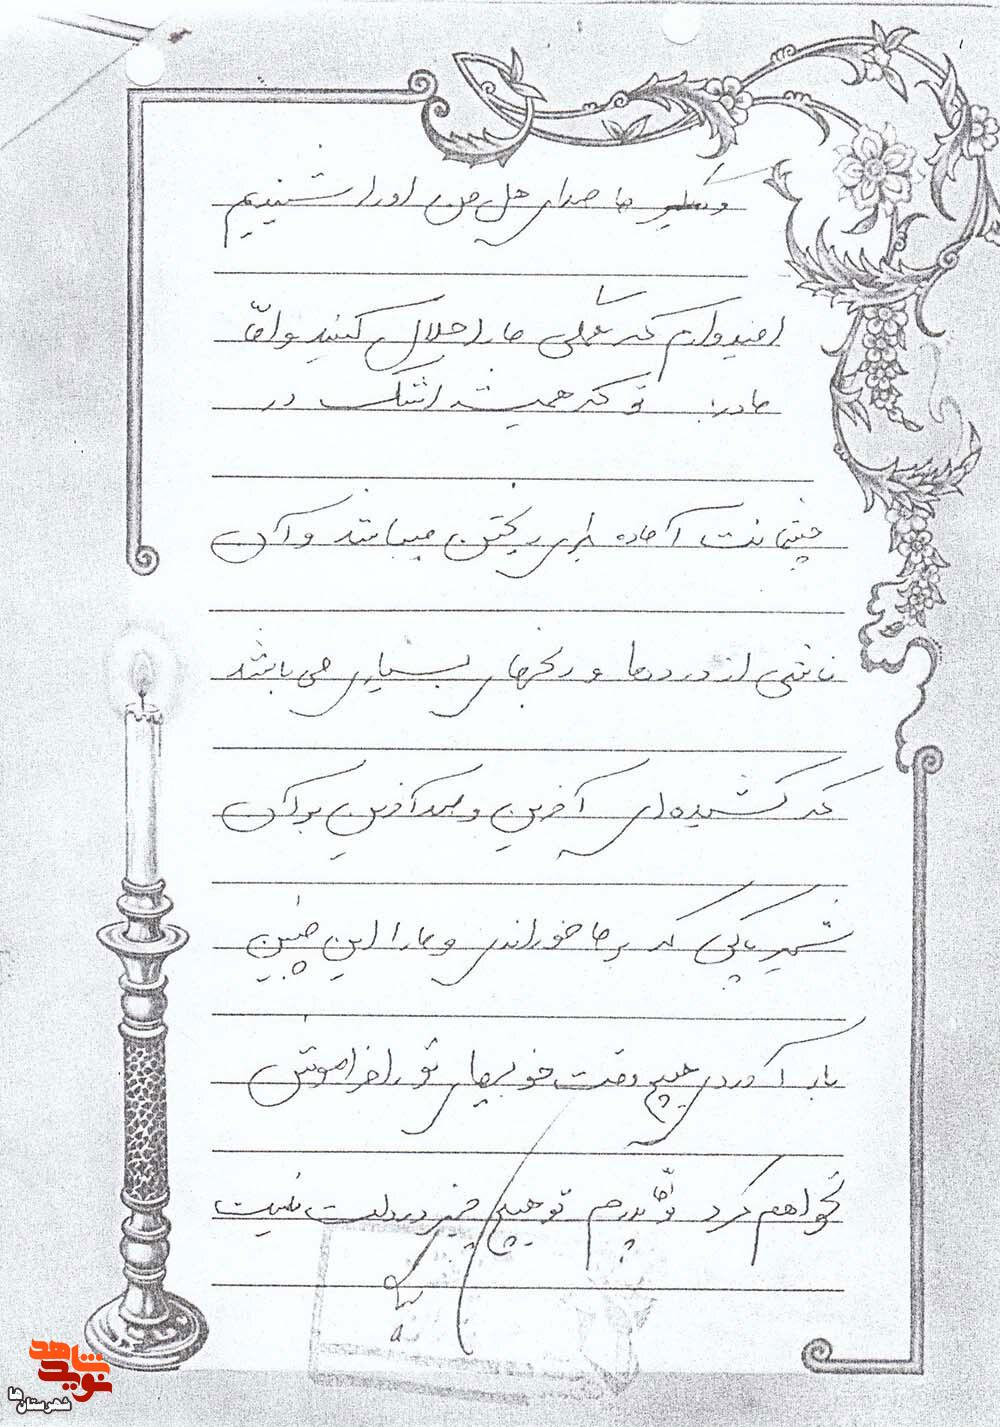 و ما صدای هل من او را شنیدیم
امیدوارم که شما ما را حلال کنید و امّا
مادر: تو که همیشه اشک در
چشمانت آماده برای ریختن میباشد و آن
ناشی از دردها و رنجهای بسیاری می باشد
که کشیده ای آفرین و صد آفرین بر آن
شیر پاکی که بما خوراندی و ما را این چنین
بار آوردی هیچ وقت خوبیهای تو را فراموش
نخواهم کرد و امّا پدرم تو هیچ چیز در دلت نیست
۵
نوید شاهد
شهرستان ها